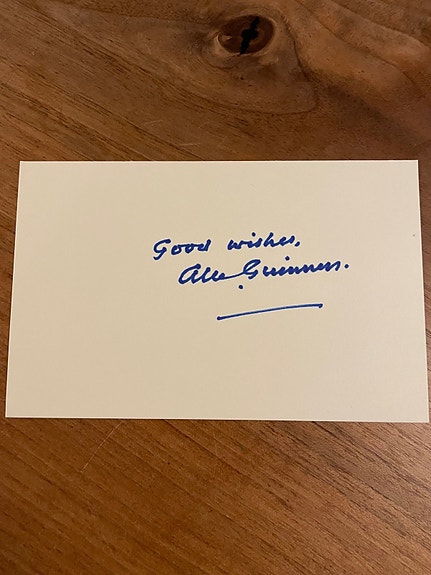 Good wishes,
Alec Guinness.